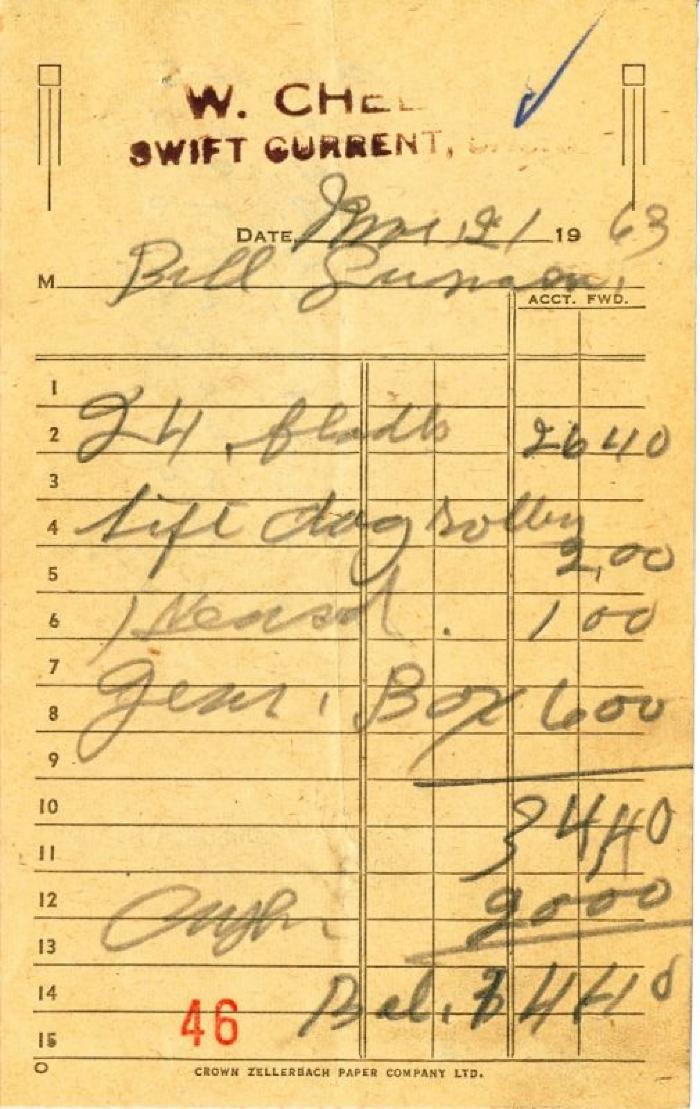 W. CHE
SWIFT CURRENT,
DATE 21 19 63
M Bill
ACCT. FWD.
1
2 24 blades 26 40
3
4 lift dog rolley
5 2,00
6 1 1 00
7
8 Gear Box 6 00
9
10 34 40
11
12 20 00
13
14 Bal. 14 40
46
15
O
CROWN ZELLERBACH PAPER COMPANY LTD.